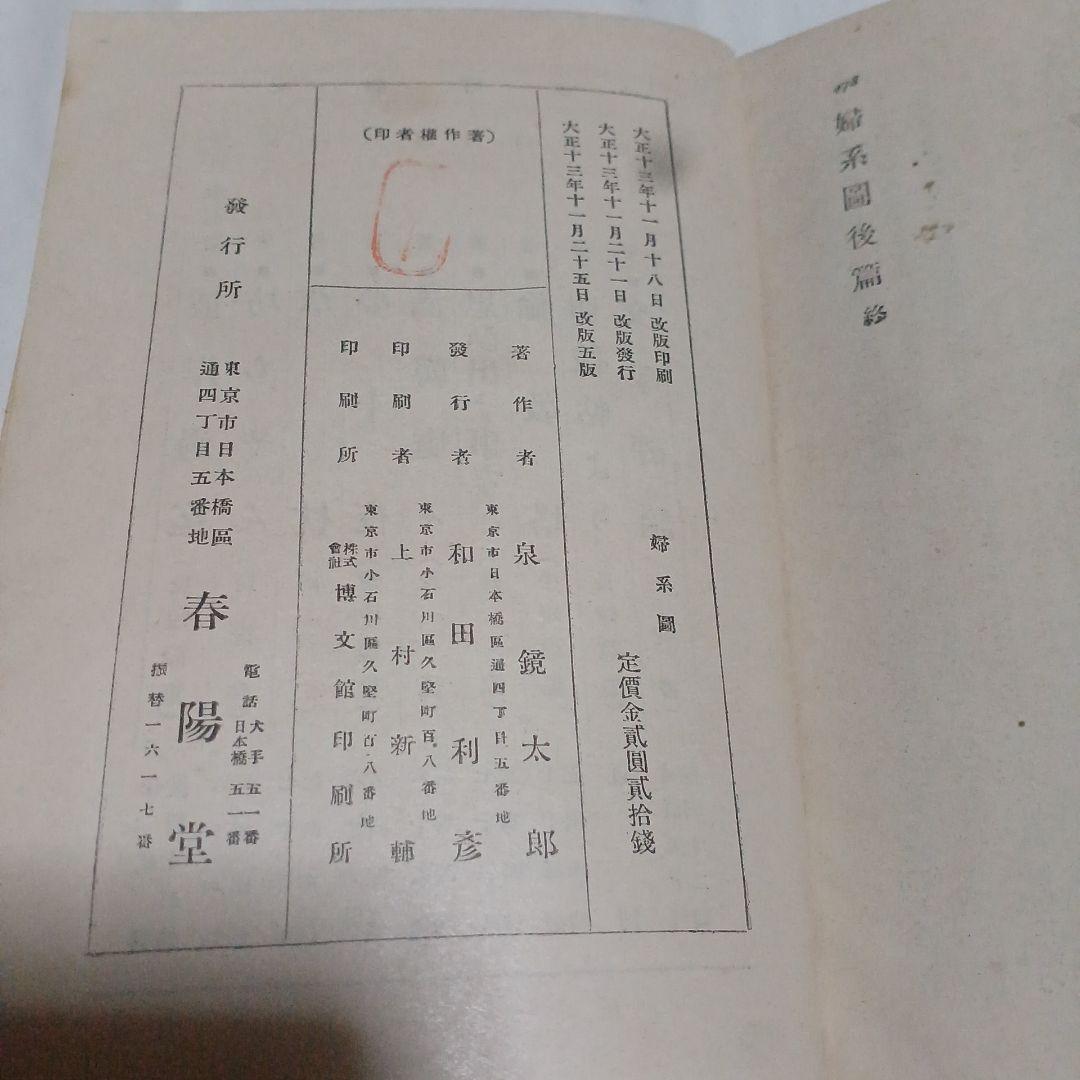 婦系圖後篇終
大正十三年十一月十八日改版印刷
大正十三年十一月二十一日改版發行
大正十三年十一月二十五日改版五版
婦系圖
定價金貳圓貳拾錢
(著作權者印)
著作者 泉鏡太郎
東京市日本橋區通四丁目五番地
發行者 和田利彥
東京市小石川區久堅町百八番地
印刷者 上村新輔
東京市小石川區久堅町百八番地
印刷所 株式會社博文館印刷所
發行所
東京市日本橋區
通四丁目五番地
春陽堂
電話
大手五一番
日本橋五一番
振替一六一七番